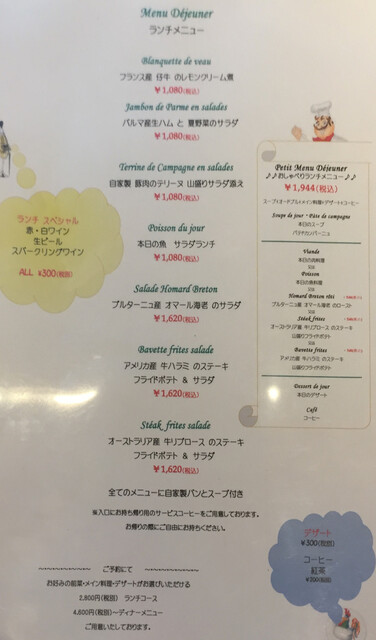 Menu Déjeuner
ランチメニュー
Blanquette de veau
フランス産 仔牛 のレモンクリーム煮
￥1,080(税込)
Jambon de Parme en salades
パルマ産生ハム と 夏野菜のサラダ
￥1,080(税込)
Terrine de Campagne en salades
自家製 豚肉のテリーヌ 山盛りサラダ添え
￥1,080(税込)
Poisson du jour
本日の魚 サラダランチ
￥1,080(税込)
Salade Homard Breton
ブルターニュ産 オマール海老 のサラダ
￥1,620(税込)
Bavette frites salade
アメリカ産 牛ハラミ のステーキ
フライドポテト & サラダ
￥1,620(税込)
Stéak frites salade
オーストラリア産 牛リブロース のステーキ
フライドポテト & サラダ
￥1,620(税込)
全てのメニューに自家製パンとスープ付き
※入口にお持ち帰り用のサービスコーヒーをご用意しております。
お帰りの際にご自由にお持ちください。
ご予約にて
お好みの前菜・メイン料理・デザートがお選びいただける
2,800円(税別) ランチコース
4,600円(税別)～ディナーメニュー
ご用意いたしております。
ランチ スペシャル
赤・白ワイン
生ビール
スパークリングワイン
ALL ¥300(税別)
Petit Menu Déjeuner
♪♪おしゃべりランチメニュー♪♪
￥1,944(税込)
スープ+オードブル+メイン料理+デザート+コーヒー
Soupe de jour・Pâte de campagne
本日のスープ
パテドカンパーニュ
Viande
本日の肉料理
又は
Poisson
本日の魚料理
又は
Homard Breton rôti
ブルターニュ産 オマール海老 のロースト
又は
Stéak frites
オーストラリア産 牛リブロース のステーキ
山盛りフライドポテト
又は
Bavette frites
アメリカ産 牛ハラミ のステーキ
山盛りフライドポテト
Dessert du jour
本日のデザート
Café
コーヒー
デザート
￥300(税別)
コーヒー
紅茶
￥200(税別)